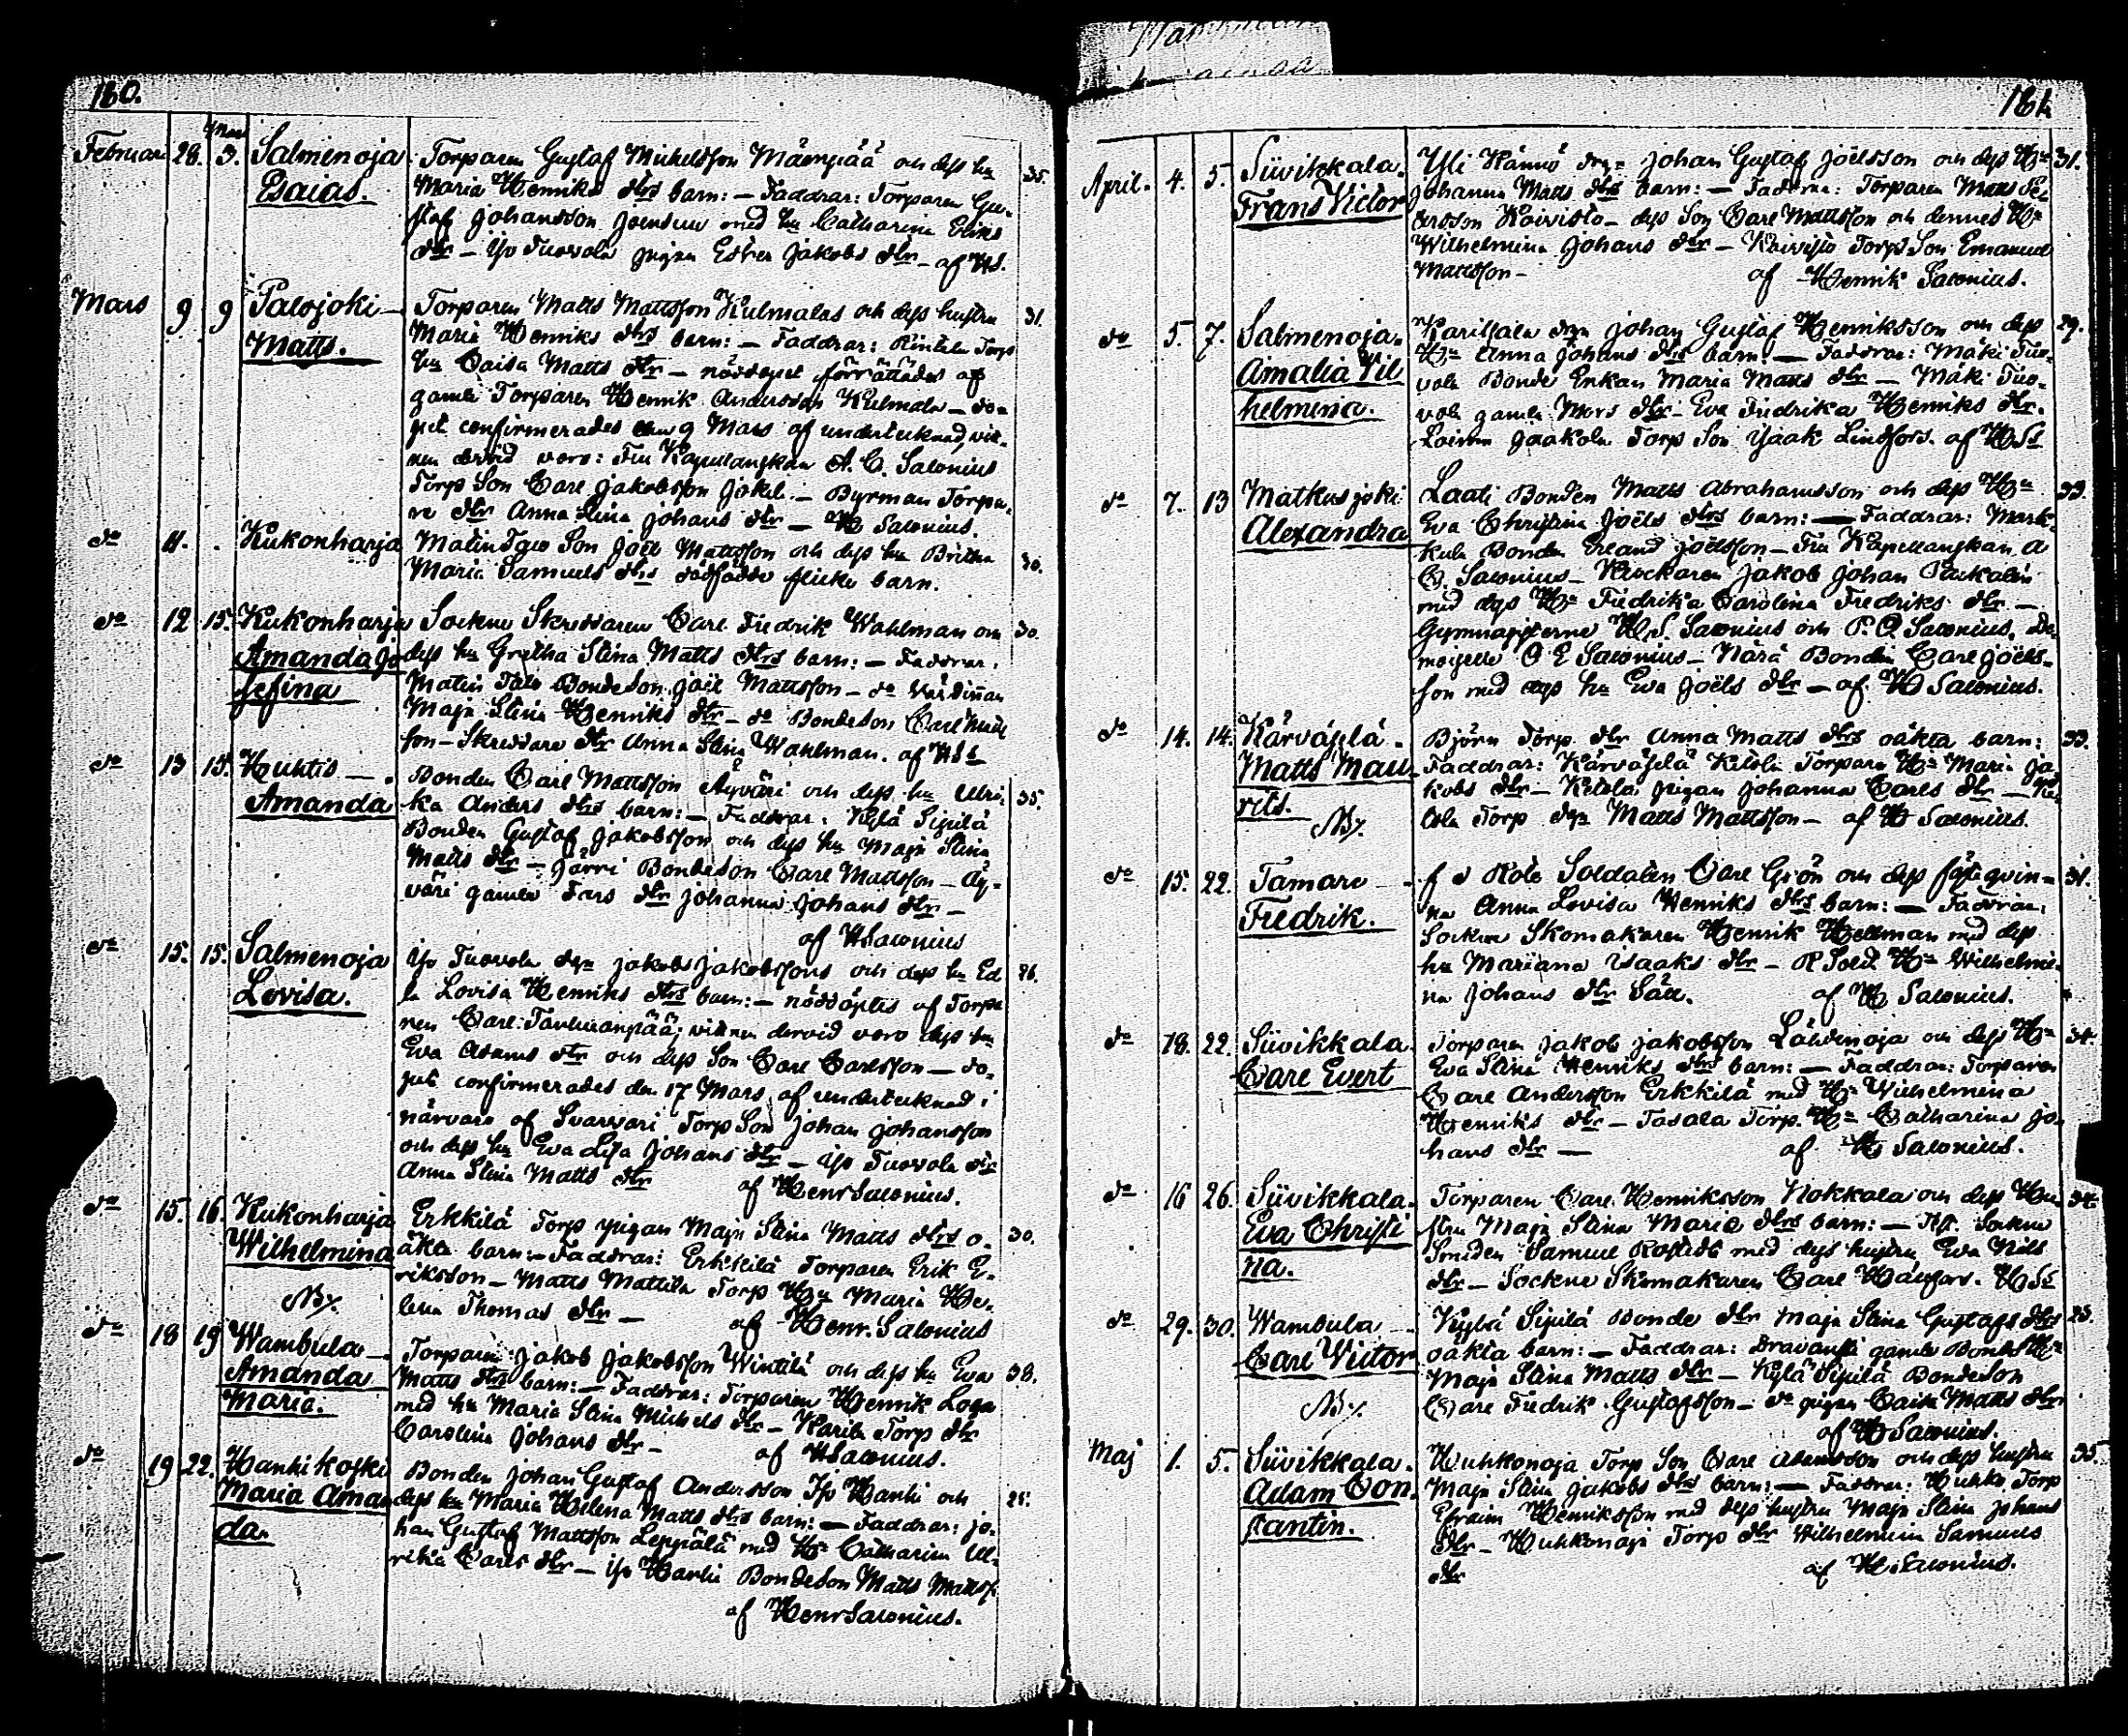 180.
Februar 28. 3. Salmenoja Torparen Gustaf Michelsson och dess hu 35.
Esaias. Maria Henriks dtrs barn: — Faddrar: Torparen Gu-
staf Johansson Joensuu med hu Catharina Eriks
dtr — Yso Tuovola pigan Ester Jakobs dtr — af HS.
Mars 9 9 Palojoki — Torparen Matts Mattsson Kulmalas och dess hustru 31.
Matts. Maria Henriks dtrs barn: — Faddrar: Rintala Torp
hu Caisa Matts dtr — nöddopet förrättades af
gamla Torparen Henrik Andersson Kulmala — do-
pet confirmerades den 9 Mars af undertecknad, vit-
nen dervid voro: Fru Kapellanskan A. C. Salonius
Torp Son Carl Jakobsson Jokel — Byrman Torpa-
re dtr Anna Stina Johans dtr — H Salonius.
do 11. . Kukonharja Matin Talo Son Joël Mattsson och dess hu Britha 30.
Maria Samuels dtrs dödfödde flicke barn.
do 12 15. Kukonharja Sockne Skreddaren Carl Fredrik Wahlman och 30.
Amanda Jo- dess hu Gretha Stina Matts dtrs barn: — Faddrar:
sefina Matin Talo Bondeson Joël Mattsson — do Värdinnan
Maja Stina Henriks dtr — do Bondeson Carl
son — Skreddare dtr Anna Stina Wahlman. af HSs
do 13 15. Huhtis — . Bonden Carl Mattsson Äyväri och dess hu Ulri- 35.
Amanda ka Anders dtrs barn: — Faddrar: Kylä Sipilä
Bonden Gustaf Jakobsson och dess hu Maja Stina
Matts dtr — Järri Bondeson Carl Mattsson — Äy-
väri gamla Fars dtr Johanna Johans dtr —
af HSalonius
do 15. 15. Salmenoja Yso Tuovola drgn Jakob Jakobssons och dess hu Ed- 26.
Lovisa. la Lovisa Henriks dtrs barn: — nöddöptes af Torpa-
ren Carl vitnen dervid voro dess hu
Eva Adams dtr och dess Son Carl Carlsson — do-
pet confirmerades den 17 Mars af undertecknad i
närvaro af Svarvari Torp Son Johan Johansson
och dess hu Eva Lisa Johans dtr — Yso Tuovola dtr
Anna Stina Matts dtr af HenrSalonius.
do 15. 16. Kukonharja Erkkilä Torp pigan Maja Stina Matts dtrs o- 30.
Wilhelmina äkta barn: — Faddrar: Erkkilä Torparen Erik E-
riksson — Matts Mattila Torp Hu Maria He-
Nb. lena Thomas dtr — af Henr. Salonius
do 18 19 Wambula — . Torparen Jakob Jakobsson Wintilä och dess hu Eva 38.
Amanda Matts dtrs barn: — Faddrar: Torparen Henrik Loga
Maria. med hu Maria Stina Michels dtr — Karila Torp dtr
Carolina Johans dtr — af HSalonius.
do 19 22. Hanhikoski Bonden Johan Gustaf Andersson Iso Hanhi och 25.
Maria Aman- dess hu Maria Helena Matts dtrs barn: — Faddrar: Jo-
da. han Gustaf Mattsson Leppälä med Hu Catharina Ul-
rika Carls dtr — Yso Hanhi Bondeson Matts Mattss.
af HenrSalonius.
181.
April. 4. 5. Siivikkala. Yli Kännö drgn Johan Gustaf Joëlsson och dess Hu 31.
Frans Victor Johanna Matts dtrs barn: — Faddrar: Torparen Matts Pe-
tersson Koivisto — dess Son Carl Mattsson och dennes Hu
Wilhelmina Johans dtr — Koivisto Torp Son Emanuel
Mattsson — af Henrik Salonius.
do 5. 7. Salmenoja. Karilaala drgn Johan Gustaf Henriksson och dess 29.
Amalia Vil- Hu Anna Johans dtrs barn: — Faddrar: Mäki Tuo-
helmina. vola Bonde Enkan Maria Matts dtr — Mäki Tuo-
vola gamla Mors dtr — Eva Fredrika Henriks dtr.
Loimu Jaakola Torp Son Isaak Lindfors. af HSs
do 7. 13 Matkusjoki Laati Bonden Matts Abrahamsson och dess Hu 33.
Alexandra Eva Christina Joëls dtrs barn: — Faddrar: Mark-
kula Bonden Erland Joëlsson — Fru Kapellanskan A
C. Salonius — Klockaren Jakob Johan Packalén
med dess Hu Fredrika Carolina Fredriks dtr —
Gymnasisterne H. S. Salonius och P. O Salonius, De-
moiselle O E Salonius — Närä Bonden Carl Joëls-
son med dess hu Eva Joëls dtr — af H Salonius.
do 14. 14. Kärväjelä. Björn Torp dtr Anna Matts dtrs oäkta barn: 33.
Matts Mau- Faddrar: Kärväjelä Ketola Torpare Hu Maria Ja-
rits. kobs dtr — Ketola pigan Johanna Carls dtr — Ke-
Nb. tola Torp drgn Matts Mattsson — af H Salonius.
do 15. 22. Tamare — . f d Rote Soldaten Carl Grön och dess fästeqvin- 31.
Fredrik. na Anna Lovisa Henriks dtrs barn: — Faddrar:
Sockne Skomakaren Henrik Hellman med dess
hu Mariana Isaaks dtr — R Sold. Hu Wilhelmi-
na Johans dtr Sätt. af H Salonius.
do 18. 22. Siivikkala. Torparen Jakob Jakobsson Lähdenoja och dess Hu 34.
Carl Evert Eva Stina Henriks dtrs barn: — Faddrar: Torparen
Carl Andersson Erkkilä med Hu Wilhelmina
Henriks dtr — Tasala Torp. Hu Catharina Jo-
hans dtr — af H Salonius.
do 16 26. Siivikkala. Torparen Carl Henriksson Nokkala och dess Hu- 34.
Eva Christi- stru Maja Stina Maria dtrs barn: — Sockne
na. Smeden Samuel Rostedt med dess hustru Eva Nils
dtr — Sockne Skomakaren Carl Hälfors. HSs
do 29. 30. Wambula — Kylä Sipilä Bonde dtr Maja Stina Gustafs dtrs 25.
Carl Victor oäkta barn: — Faddrar: Dravantti gamla Bonde Hu
Maja Stina Matts dtr — Kylä Sipilä Bondeson
Nb. Carl Fredrik Gustafsson — do pigan Caisa Matts dtr
af H Salonius.
Maj 1. 5. Siivikkala. Huhkonoja Torp Son Carl Adamsson och dess hustru 35.
Adam Con- Maja Stina Jakobs dtrs barn: — Faddrar: Huhko Torp
stantin. Efraim Henriksson med dess hustru Maja Stina Johans
dtr — Huhkonoja Torp dtr Wilhelmina Samuels
dtr af H. Salonius.